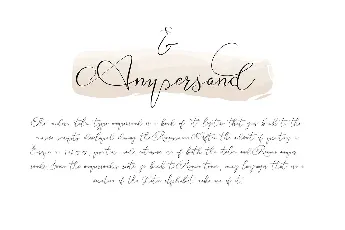 &
Ampersand
The modern italic type ampersand is a kind of "et" ligature that goes back to the
cursive scripts developed during the Renaissance. After the advent of printing in
Europe in 1455, printers made extensive use of both the italic and Roman amper
sands. Since the ampersand's roots go back to Roman times, many languages that use a
variation of the Latin alphabet make use of it.